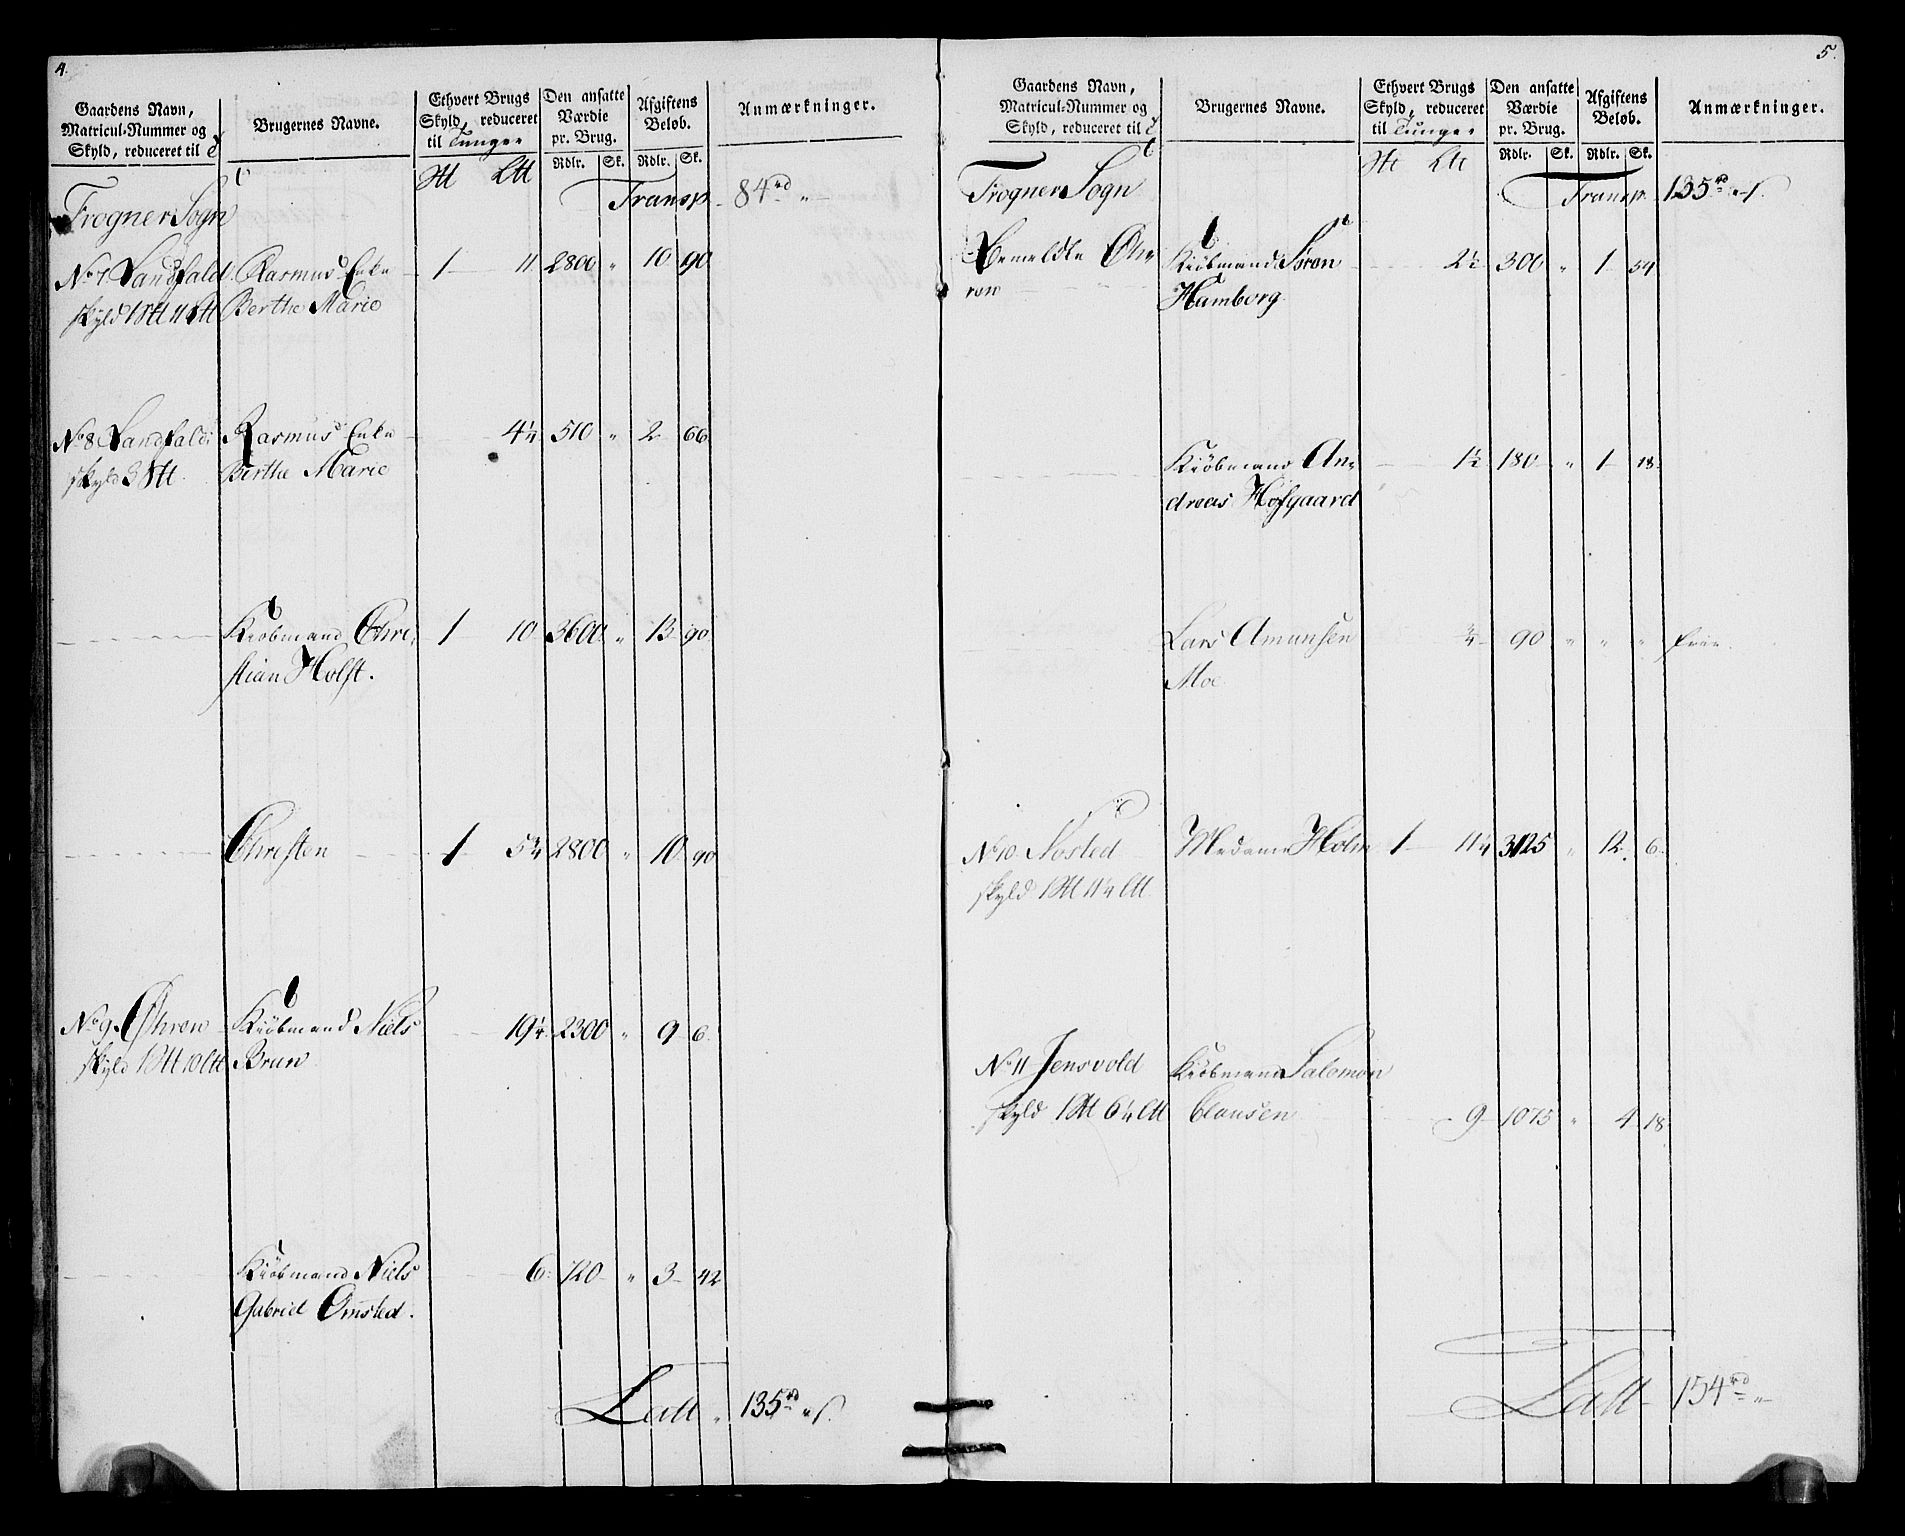 4.
Gaardens Navn,
Matricul-Nummer og
Skyld, reduceret til
Brugernes Navne.
Ethvert Brugs
Skyld, reduceret
til Tunge
Den ansatte
Værdie
pr. Brug.
Rdlr. Sk.
Afgiftens
Beløb.
Rdlr. Sk.
Anmærkninger.
Frogner Sogn
Transp. 84 rd "
No 7 Sandfald Rasmus Enke 1 11 2800 " 10 90
skyld 1 11 Berthe Marie
No 8 Sandfald Rasmus Enke 4¼ 510 " 2 66
skyld 3 Berthe Marie
Kiøbmand Chri- 1 10 3600 " 13 90
stian Holst.
Christen 1 5¾ 2800 " 10 90
No 9 Øhren Kiøbmand Niels 19¼ 2300 " 9 6
skyld 1 10 Brun
Kiøbmand Niels 6 720 " 3 42
Gabriel Omsted.
Latt 135 rd " s.
5.
Gaardens Navn,
Matricul-Nummer og
Skyld, reduceret til
Brugernes Navne.
Ethvert Brugs
Skyld, reduceret
til Tunge
Den ansatte
Værdie
pr. Brug.
Rdlr. Sk.
Afgiftens
Beløb.
Rdlr. Sk.
Anmærkninger.
Frogner Sogn
Transp. 135 rd " s.
Bemeldte Øh- Kiøbmand Søren 2½ 300 " 1 54
ren Hamborg
Kiøbmand An- 1½ 180 " 1 18
dreas Hofgaard
Lars Amunsen ¾ 90 " " " frie.
Moe
No 10 Nosted Madame Holm 1 11¼ 3125 " 12 6
skyld 1 11¼
No 11 Jensvold Kiøbmand Salomon
skyld 1 6¼ Clausen 9 1075 " 4 18
Latt 154 rd "